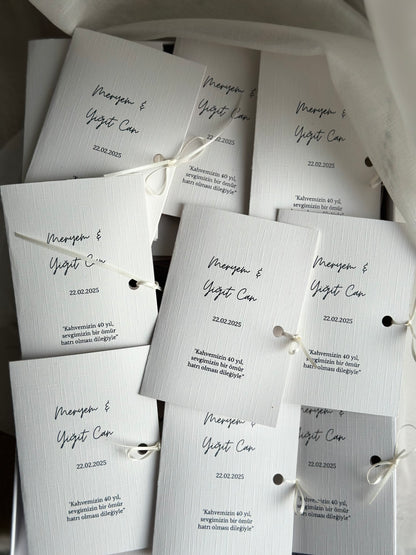 Meryem &
Yiğit Can
22.02.2025
"Kahvemizin 40 yıl,
sevgimizin bir ömür
hatrı olması dileğiyle"
Meryem &
Yiğit Can
"Kahvemizin 40 yıl,
sevgimizin bir ömür
hatrı olması dileğiyle"
Meryem &
Yiğit Can
22.02.2025
"Kahvemizin 40 yıl,
sevgimizin bir ömür
hatrı olması dileğiyle"
Meryem &
Yiğit Can
22.02.2025
"Kahvemizin 40 yıl,
sevgimizin bir ömür
hatrı olması dileğiyle"
Meryem &
Yiğit Can
22.02.2025
"Kahvemizin 40 yıl,
sevgimizin bir ömür
hatrı olması dileğiyle"
Meryem &
Yiğit Can
22.02.2025
"Kahvemizin 40 yıl,
sevgimizin bir ömür
hatrı olması dileğiyle"
Meryem &
Yiğit Can
22.02.2025
"Kahvemizin 40 yıl,
sevgimizin bir ömür
hatrı olması dileğiyle"
Meryem &
Yiğit Can
22.02.2025
"Kahvemizin 40 yıl,
sevgimizin bir ömür
hatrı olması dileğiyle"
Yiğit Can
22.02.2025
"Kahvemizin 40 yıl,
sevgimizin bir ömür
hatrı olması dileğiyle"